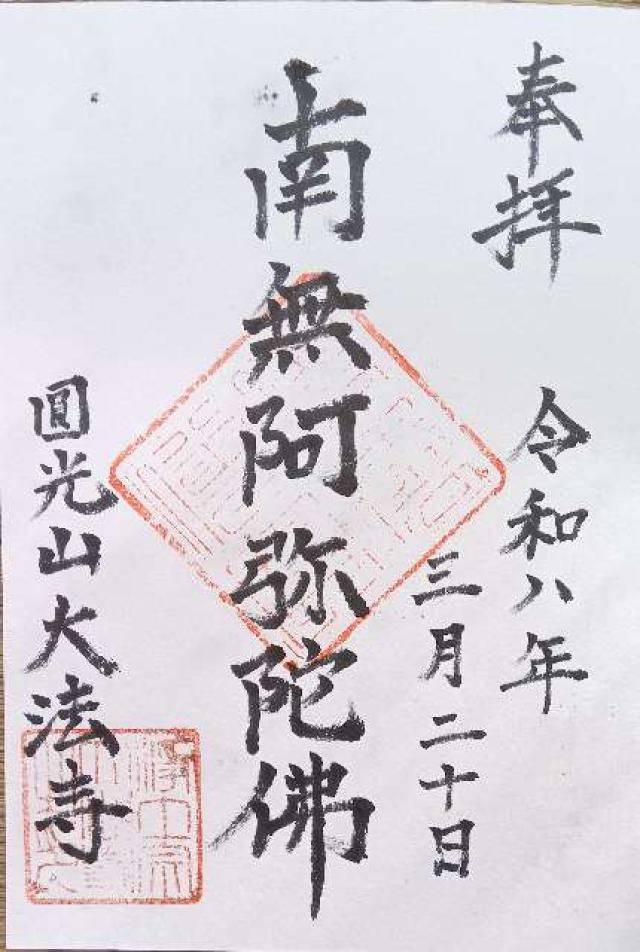 奉拝
令和八年
三月二十日
南無阿弥陀佛
圓光山大法寺